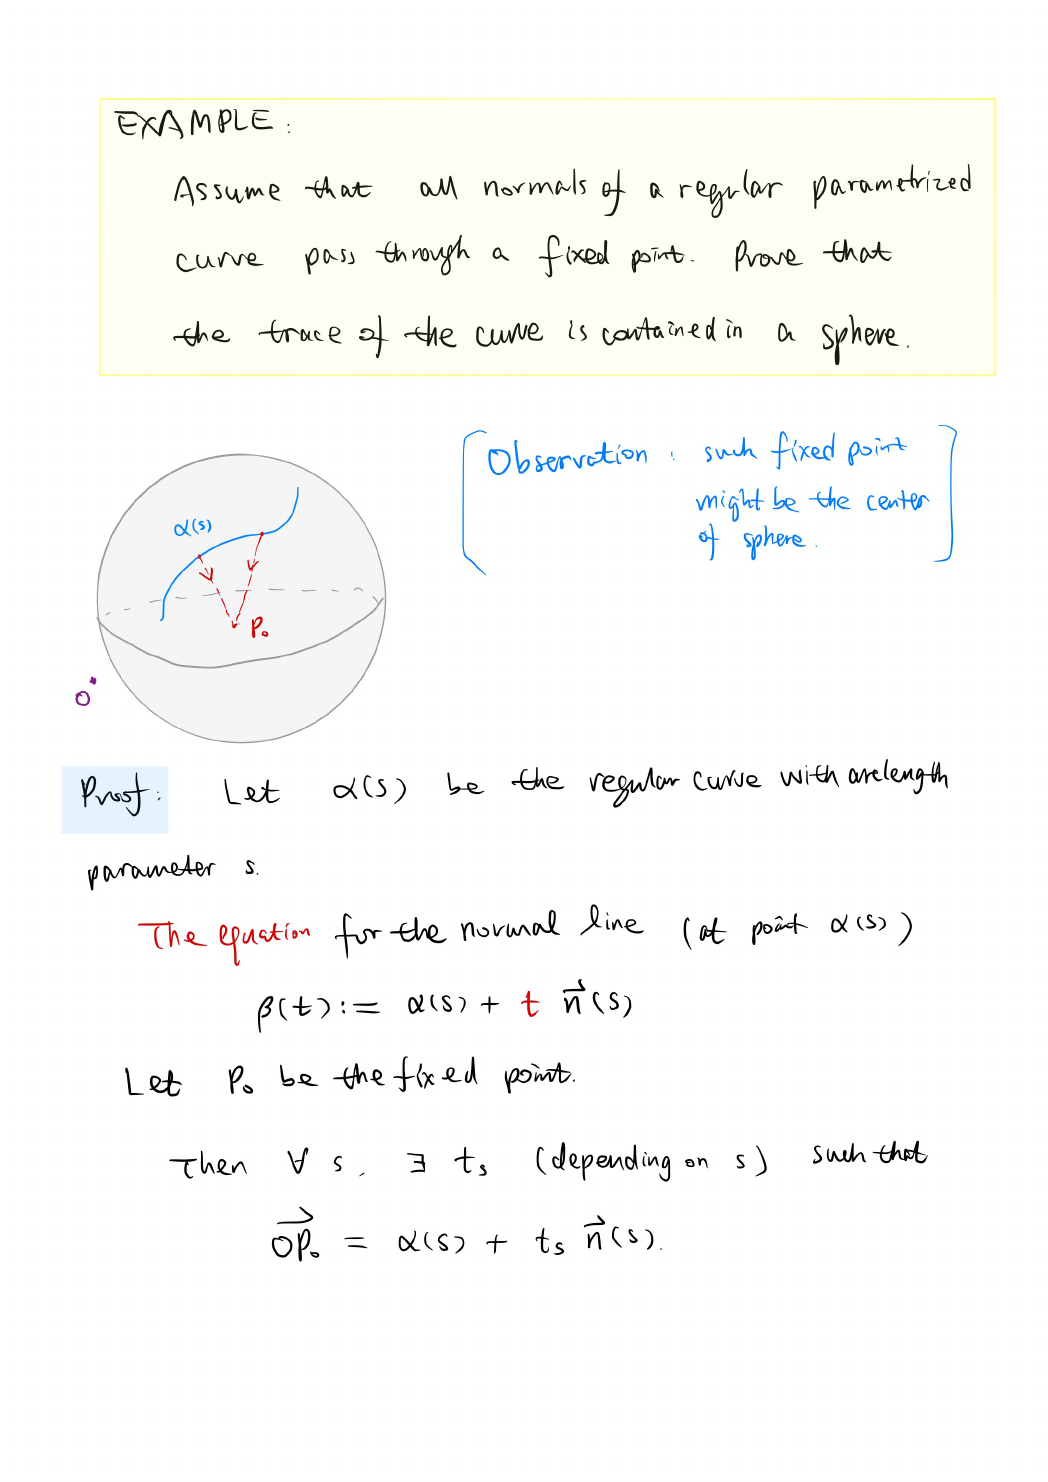 EXAMPLE:
Assume that all normals of a regular parametrized
curve pass through a fixed point. Prove that
the trace of the curve is contained in a sphere.
[Observation: such fixed point
might be the center
of sphere.]
α(s)
P₀
O
Proof: Let α(s) be the regular curve with arclength
parameter s.
The equation for the normal line (at point α(s))
β(t) := α(s) + t n⃗(s)
Let P₀ be the fixed point.
Then ∀ s, ∃ tₛ (depending on s) such that
\overrightarrow{OP₀} = α(s) + tₛ n⃗(s).